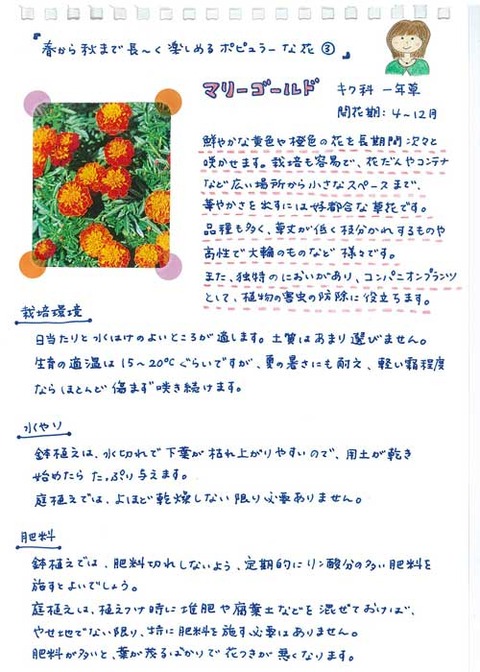 『春から秋まで長〜く楽しめるポピュラーな花③』
マリーゴールド
キク科 一年草
開花期：4〜12月
鮮やかな黄色や橙色の花を長期間次々と
咲かせます。栽培も容易で、花だんやコンテナ
など広い場所から小さなスペースまで、
華やかさを出すには好都合な草花です。
品種も多く、草丈が低く枝分かれするものや
高性で大輪のものなど様々です。
また、独特のにおいがあり、コンパニオンプランツ
として、植物の害虫の防除に役立ちます。
栽培環境
日当たりと水はけのよいところが適します。土質はあまり選びません。
生育の適温は15〜20℃ぐらいですが、夏の暑さにも耐え、軽い霜程度
ならほとんど傷まず咲き続けます。
水やり
鉢植えは、水切れで下葉が枯れ上がりやすいので、用土が乾き
始めたらたっぷり与えます。
庭植えでは、よほど乾燥しない限り必要ありません。
肥料
鉢植えでは、肥料切れしないよう、定期的にリン酸分の多い肥料を
施すとよいでしょう。
庭植えは、植えつけ時に堆肥や腐葉土などを混ぜておけば、
やせ地でない限り、特に肥料を施す必要はありません。
肥料が多いと、葉が茂るばかりで花つきが悪くなります。